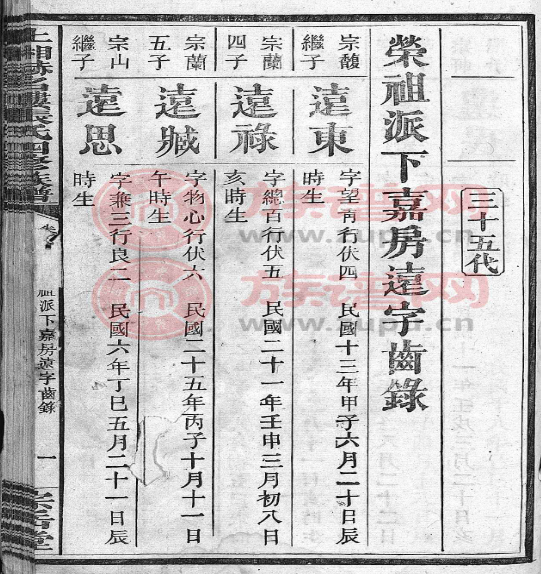 三十五代
榮祖派下嘉房遠字齒錄
宗馥
繼子
遠東
字望再行伏四 民國十三年甲子六月二十日辰
時生
宗蘭
四子
遠祿
字總百行伏五 民國二十一年壬申三月初八日
亥時生
宗蘭
五子
遠臧
字物心行伏六 民國二十五年丙子十月十一日
午時生
宗山
繼子
遠思
字兼三行良二 民國六年丁巳五月二十一日辰
時生
祖派下嘉房遠字齒錄
一
族譜网
www.zupu.cn